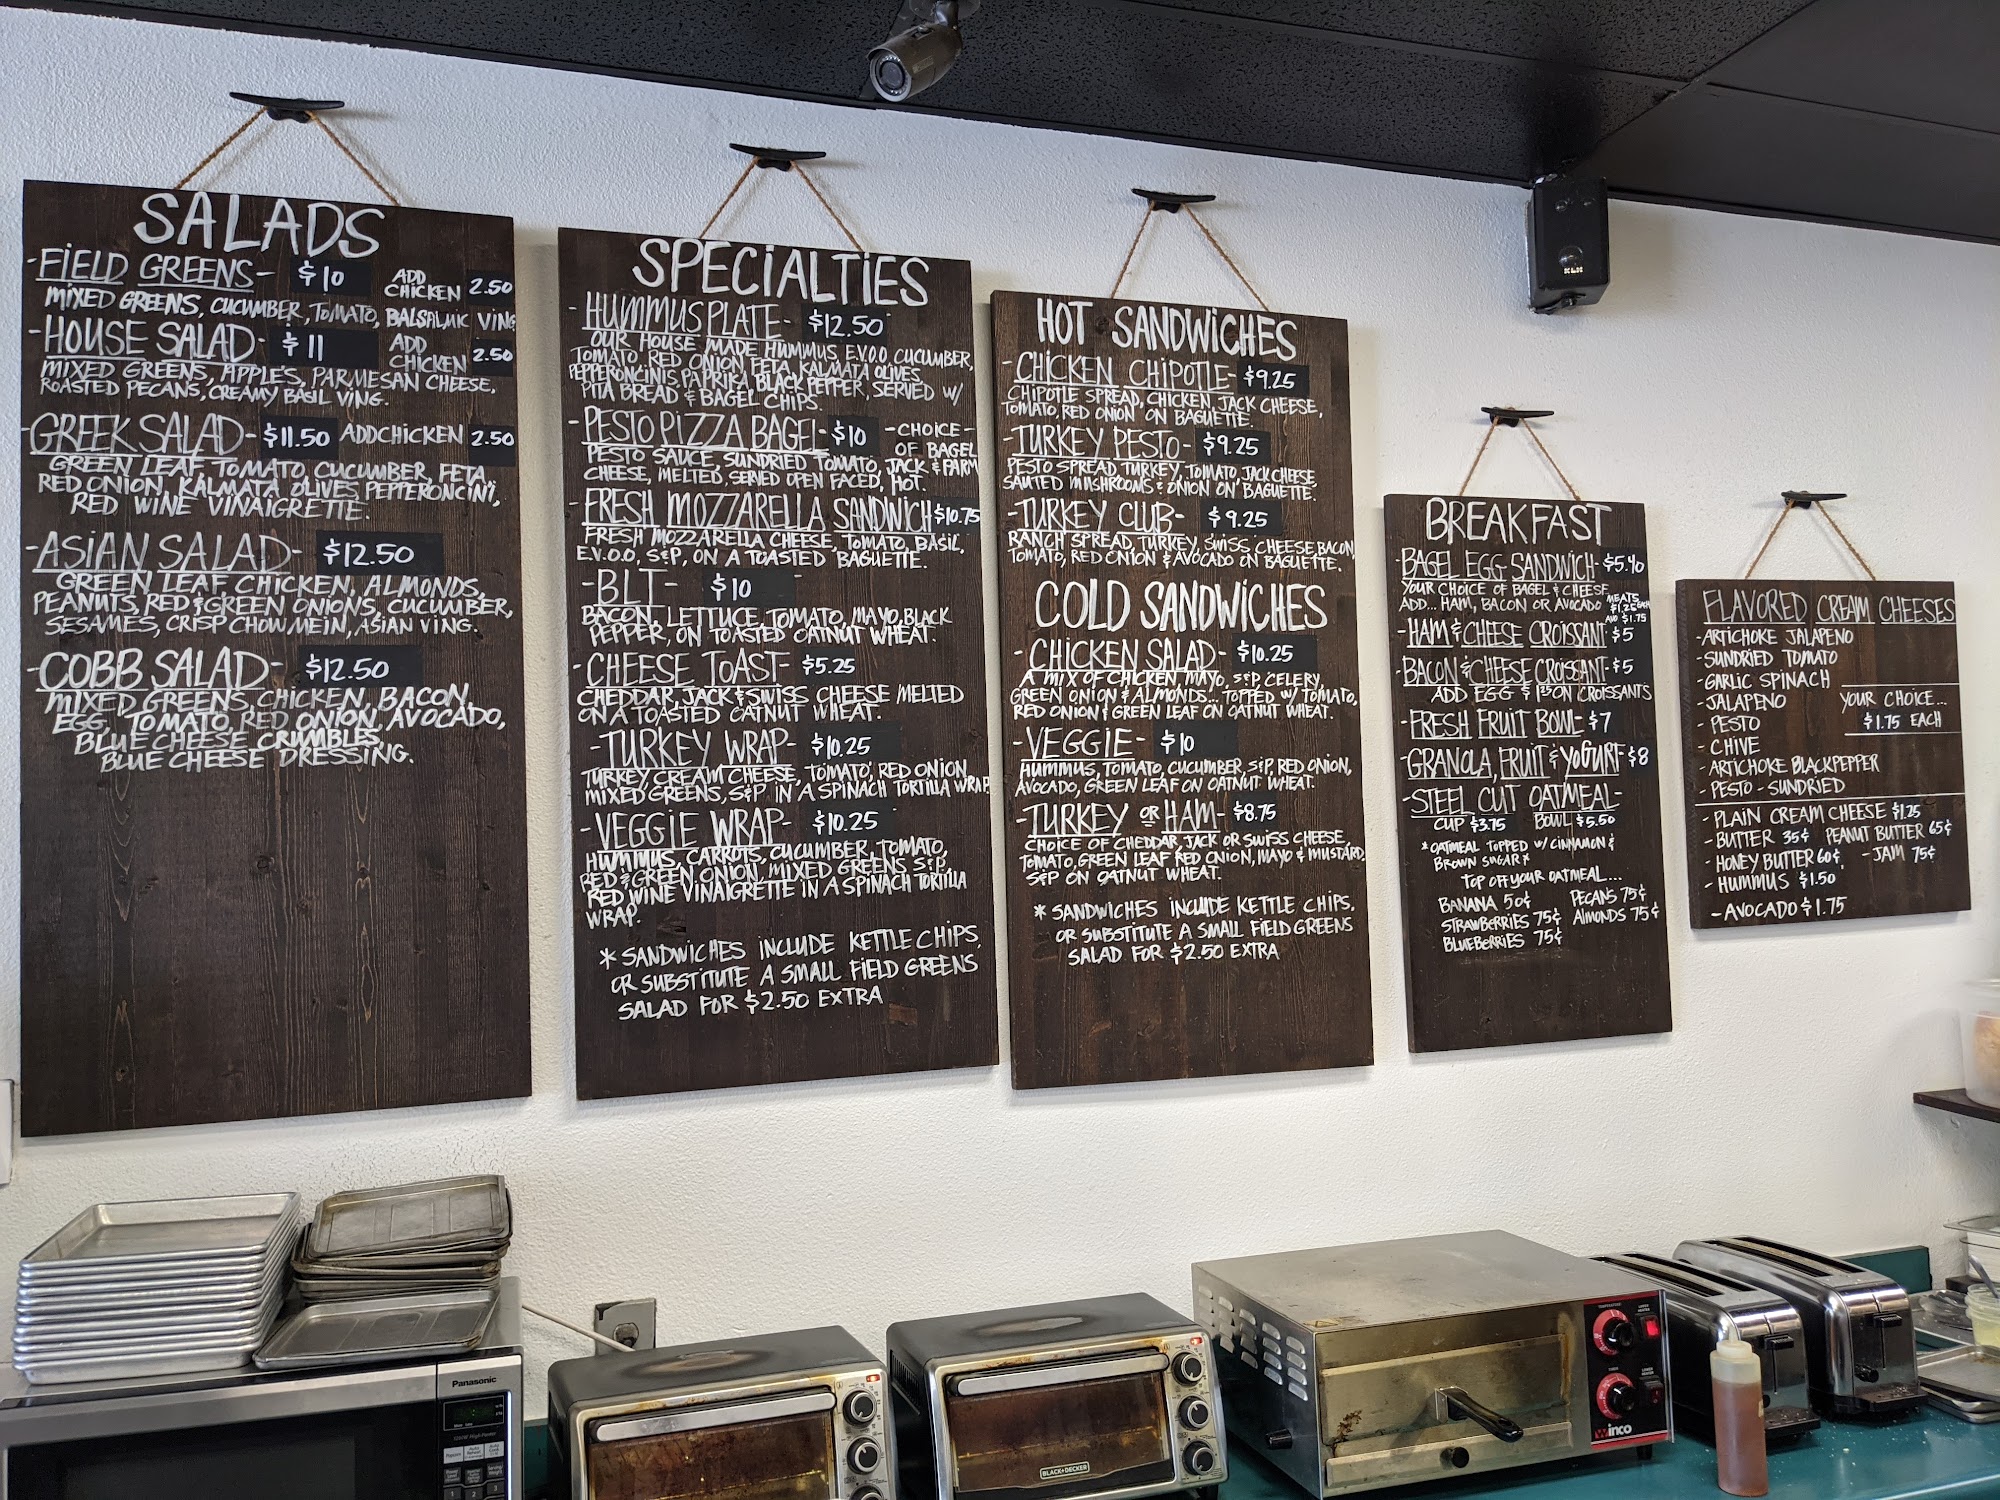 SALADS
-FIELD GREENS- $10 ADD CHICKEN 2.50
MIXED GREENS, CUCUMBER, TOMATO, BALSALMIC VING
-HOUSE SALAD- $11 ADD CHICKEN 2.50
MIXED GREENS, APPLE'S, PARMESAN CHEESE,
ROASTED PECANS, CREAMY BASIL VING.
-GREEK SALAD- $11.50 ADD CHICKEN 2.50
GREEN LEAF, TOMATO, CUCUMBER, FETA,
RED ONION, KALMATA OLIVES, PEPPERONCINI,
RED WINE VINAIGRETTE.
-ASIAN SALAD- $12.50
GREEN LEAF, CHICKEN, ALMONDS,
PEANUTS, RED & GREEN ONIONS, CUCUMBER,
SESAMES, CRISP CHOW MEIN, ASIAN VING.
-COBB SALAD- $12.50
MIXED GREENS, CHICKEN, BACON,
EGG, TOMATO, RED ONION, AVOCADO,
BLUE CHEESE CRUMBLES,
BLUE CHEESE DRESSING.
SPECIALTIES
-HUMMUS PLATE- $12.50
OUR HOUSE MADE HUMMUS, E.V.O.O, CUCUMBER,
TOMATO, RED ONION, FETA, KALMATA OLIVES,
PEPPERONCINIS, PAPRIKA, BLACK PEPPER, SERVED W/
PITA BREAD & BAGEL CHIPS.
-PESTO PIZZA BAGEL- $10 -CHOICE-
OF BAGEL
PESTO SAUCE, SUNDRIED TOMATO, JACK & PARM
CHEESE, MELTED, SERVED OPEN FACED, HOT.
-FRESH MOZZARELLA SANDWICH $10.75
FRESH MOZZARELLA CHEESE, TOMATO, BASIL,
E.V.O.O, S&P, ON A TOASTED BAGUETTE.
-BLT- $10
BACON, LETTUCE, TOMATO, MAYO, BLACK
PEPPER, ON TOASTED OATNUT WHEAT.
-CHEESE TOAST- $5.25
CHEDDAR, JACK & SWISS CHEESE MELTED
ON A TOASTED OATNUT WHEAT.
-TURKEY WRAP- $10.25
TURKEY, CREAM CHEESE, TOMATO, RED ONION,
MIXED GREENS, S&P IN A SPINACH TORTILLA WRAP
-VEGGIE WRAP- $10.25
HUMMUS, CARROTS, CUCUMBER, TOMATO,
RED & GREEN ONION, MIXED GREENS S&P,
RED WINE VINAIGRETTE IN A SPINACH TORTILLA
WRAP.
* SANDWICHES INCLUDE KETTLE CHIPS,
OR SUBSTITUTE A SMALL FIELD GREENS
SALAD FOR $2.50 EXTRA
HOT SANDWICHES
-CHICKEN CHIPOTLE- $9.25
CHIPOTLE SPREAD, CHICKEN, JACK CHEESE,
TOMATO, RED ONION ON BAGUETTE.
-TURKEY PESTO- $9.25
PESTO SPREAD, TURKEY, TOMATO, JACK CHEESE,
SAUTED MUSHROOMS & ONION ON BAGUETTE.
-TURKEY CLUB- $9.25
RANCH SPREAD, TURKEY, SWISS CHEESE, BACON,
TOMATO, RED ONION & AVOCADO ON BAGUETTE.
COLD SANDWICHES
-CHICKEN SALAD- $10.25
A MIX OF CHICKEN, MAYO, S&P, CELERY,
GREEN ONION & ALMONDS... TOPPED W/ TOMATO,
RED ONION & GREEN LEAF ON OATNUT WHEAT.
-VEGGIE- $10
HUMMUS, TOMATO, CUCUMBER, S&P, RED ONION,
AVOCADO, GREEN LEAF ON OATNUT WHEAT.
-TURKEY OR HAM- $8.75
CHOICE OF CHEDDAR, JACK OR SWISS CHEESE,
TOMATO, GREEN LEAF, RED ONION, MAYO & MUSTARD,
S&P ON OATNUT WHEAT.
* SANDWICHES INCLUDE KETTLE CHIPS.
OR SUBSTITUTE A SMALL FIELD GREENS
SALAD FOR $2.50 EXTRA
BREAKFAST
-BAGEL EGG SANDWICH- $5.40
YOUR CHOICE OF BAGEL & CHEESE
ADD... HAM, BACON OR AVOCADO MEATS $1.25 EACH
AVO $1.75
-HAM & CHEESE CROISSANT- $5
-BACON & CHEESE CROISSANT- $5
ADD EGG $1.25 ON CROISSANTS
-FRESH FRUIT BOWL- $7
-GRANOLA, FRUIT & YOGURT- $8
-STEEL CUT OATMEAL-
CUP $3.75 BOWL $5.50
*OATMEAL TOPPED W/ CINNAMON &
BROWN SUGAR*
TOP OFF YOUR OATMEAL...
BANANA 50¢ PECANS 75¢
STRAWBERRIES 75¢ ALMONDS 75¢
BLUEBERRIES 75¢
FLAVORED CREAM CHEESES
-ARTICHOKE JALAPENO
-SUNDRIED TOMATO
-GARLIC SPINACH
-JALAPENO YOUR CHOICE...
-PESTO $1.75 EACH
-CHIVE
-ARTICHOKE BLACKPEPPER
-PESTO-SUNDRIED
-PLAIN CREAM CHEESE $1.25
-BUTTER 35¢ PEANUT BUTTER 65¢
-HONEY BUTTER 60¢ -JAM 75¢
-HUMMUS $1.50
-AVOCADO $1.75
Panasonic
BLACK+DECKER
Winco